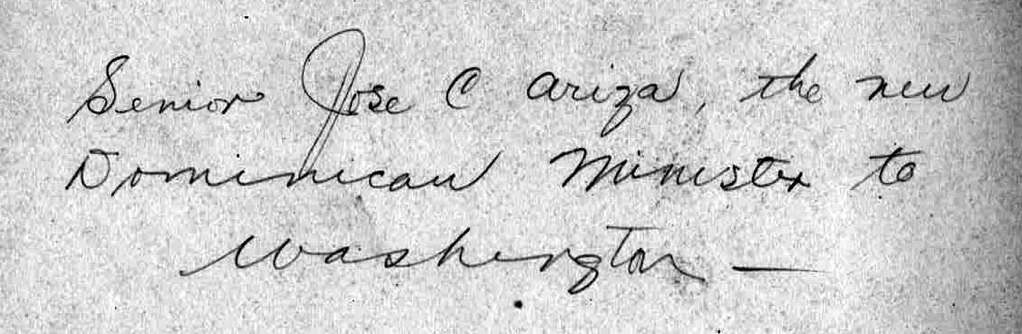 Senior Jose C Ariza, the new
Dominican Minister to
Washington —